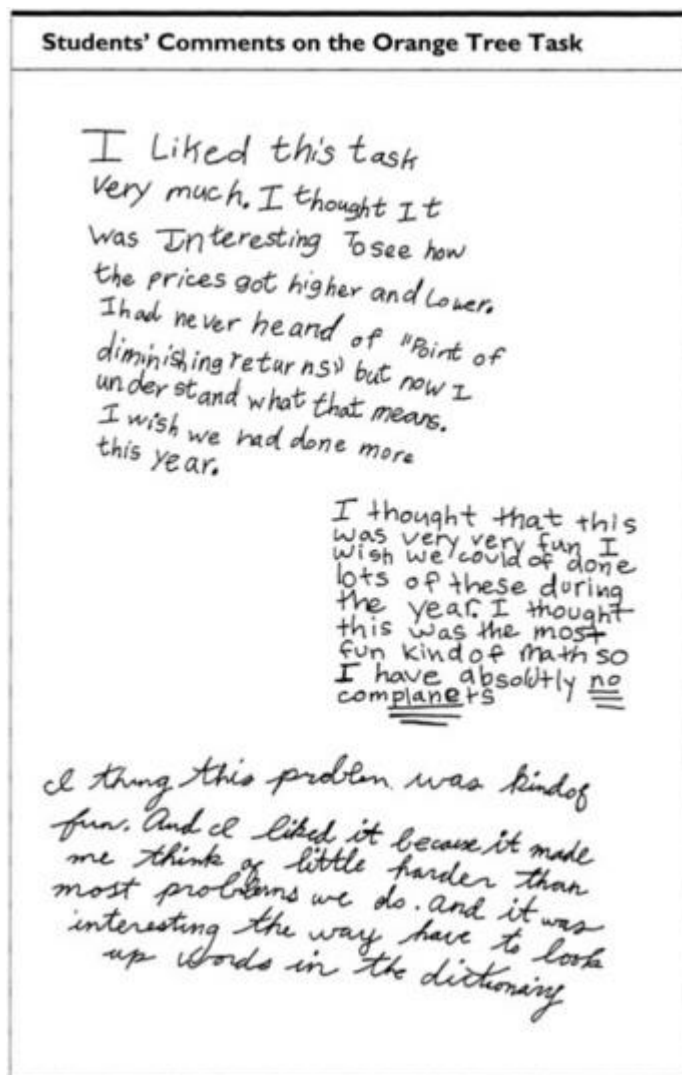 Students' Comments on the Orange Tree Task
I Liked this task
very much. I thought It
was Interesting To see how
the prices got higher and lower.
I had never heand of "Point of
diminishing returns" but now I
understand what that means.
I wish we had done more
this year.
I thought that this
was very very fun I
wish we could of done
lots of these during
the year. I thought
this was the most
fun kind of math so
I have absolutly no
complanets
I thing this problem was kind of
fun. And I liked it because it made
me think a little harder than
most problems we do. and it was
interesting the way have to look
up words in the dictionary